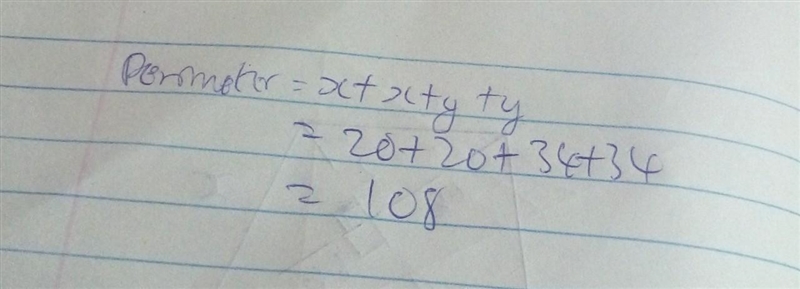 Perimeter = x + x + y + y
= 20 + 20 + 34 + 34
= 108